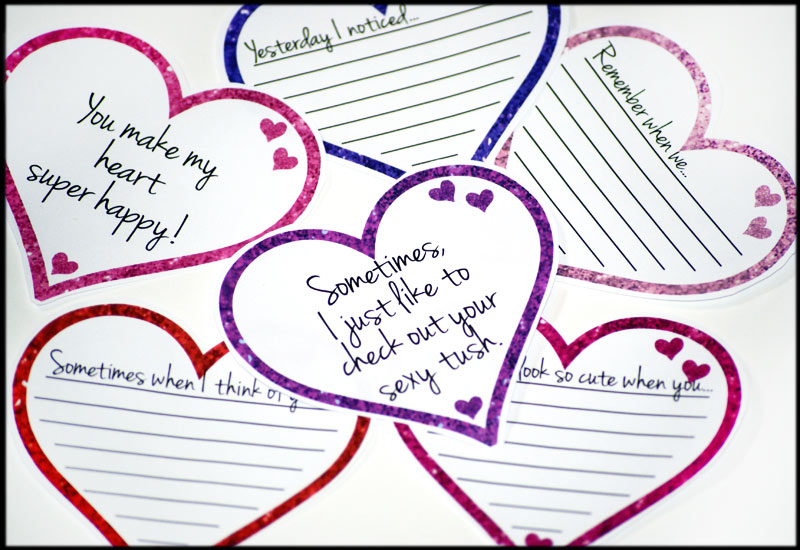 Yesterday I noticed...
Remember when we...
You make my
heart
super happy!
Sometimes,
I just like to
check out your
sexy tush.
Sometimes when I think of y
look so cute when you...